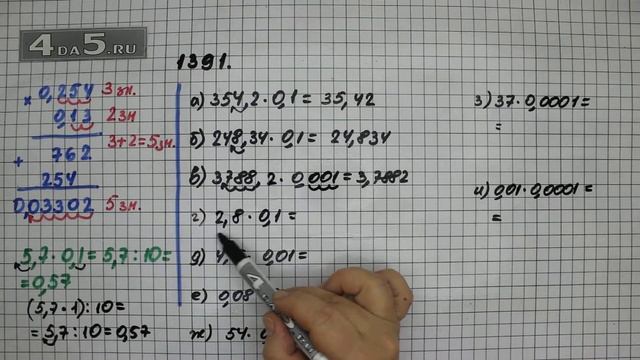 4DA5.RU
1391.
× 0,254 3 зн.
0,13 2 зн
3+2=5 зн.
+ 762
254
0,03302 5 зн.
5,7 · 0,1 = 5,7 : 10 =
= 0,57
(5,7 · 1) : 10 =
= 5,7 : 10 = 0,57
а) 354,2 · 0,1 = 35,42
б) 248,34 · 0,1 = 24,834
в) 3788,2 · 0,001 = 3,7882
г) 2,8 · 0,1 =
д) 4, · 0,01 =
е) 0,08
ж) 54 · 0
з) 37 · 0,0001 =
=
и) 0,01 · 0,0001 =
=